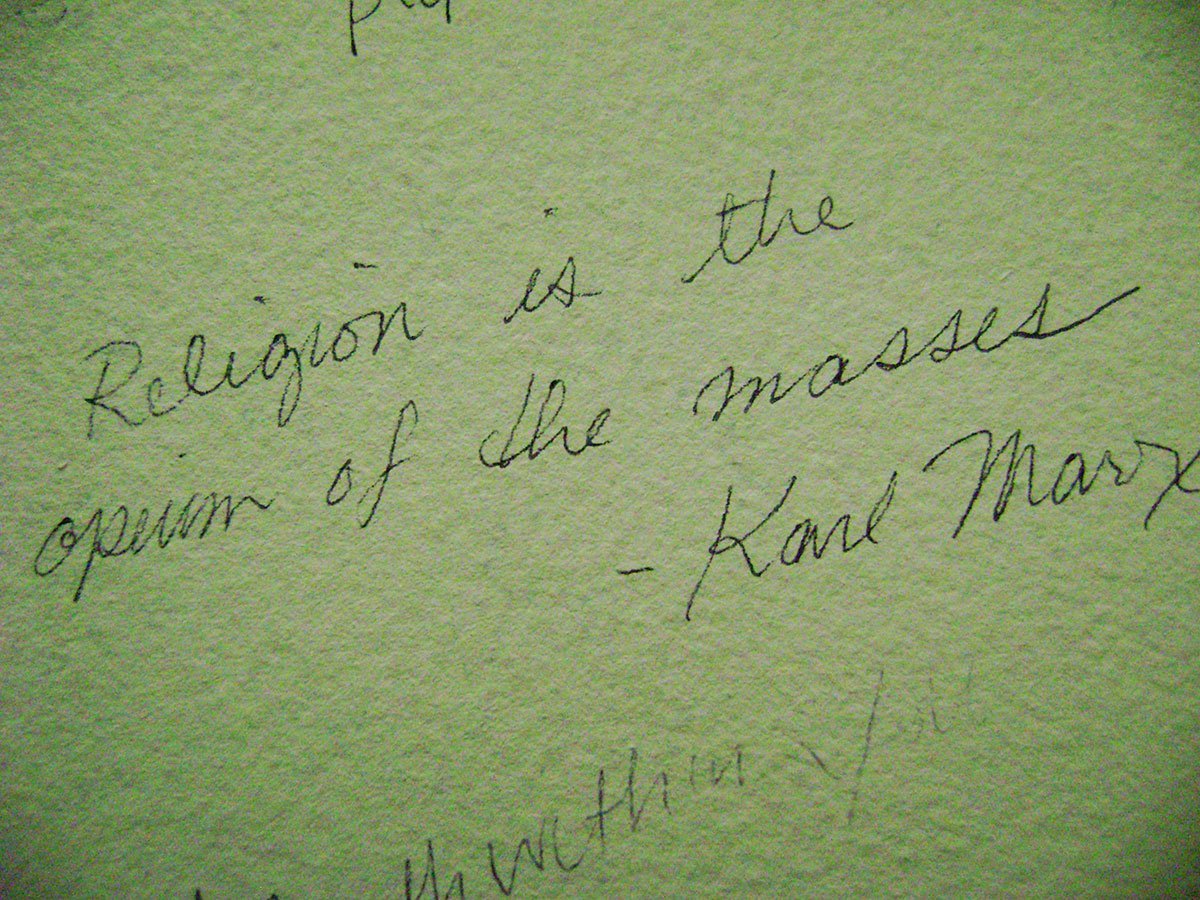 Religion is the
opium of the masses
- Karl Marx